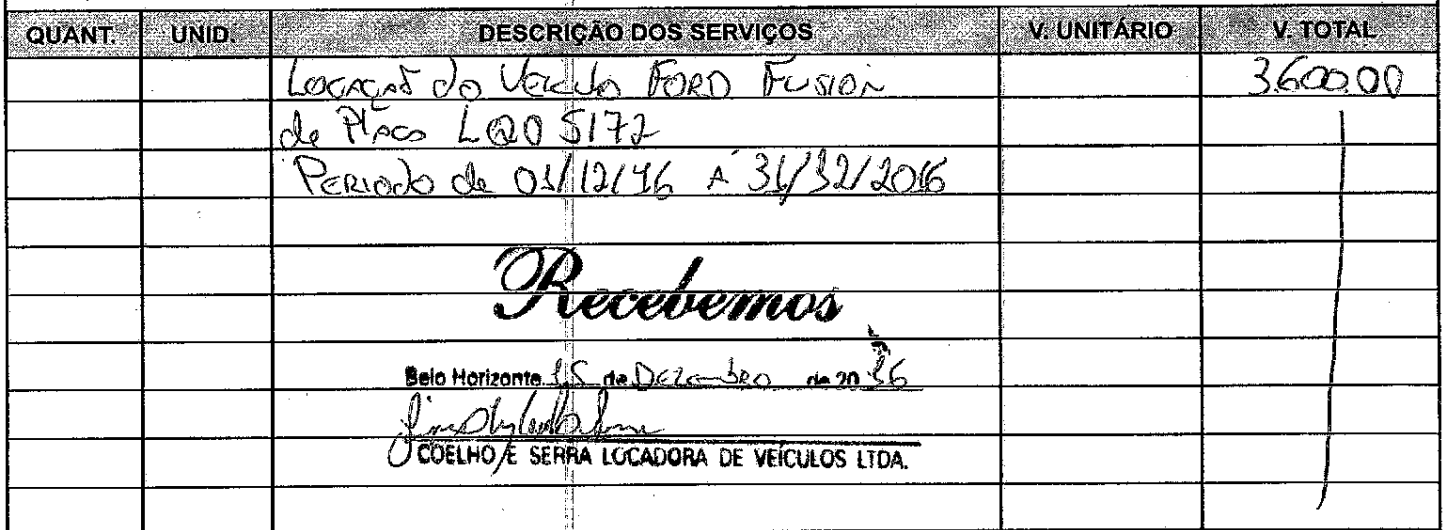 QUANT. UNID. DESCRIÇÃO DOS SERVIÇOS V. UNITÁRIO V. TOTAL
Locação do Veiculo FORD FUSION 3.600,00
de Placa LQO 5172
PERIODO de 01/12/16 A 31/12/2016
Recebemos
Belo Horizonte 15 de Dezembro de 2016
COELHO E SERRA LOCADORA DE VEÍCULOS LTDA.